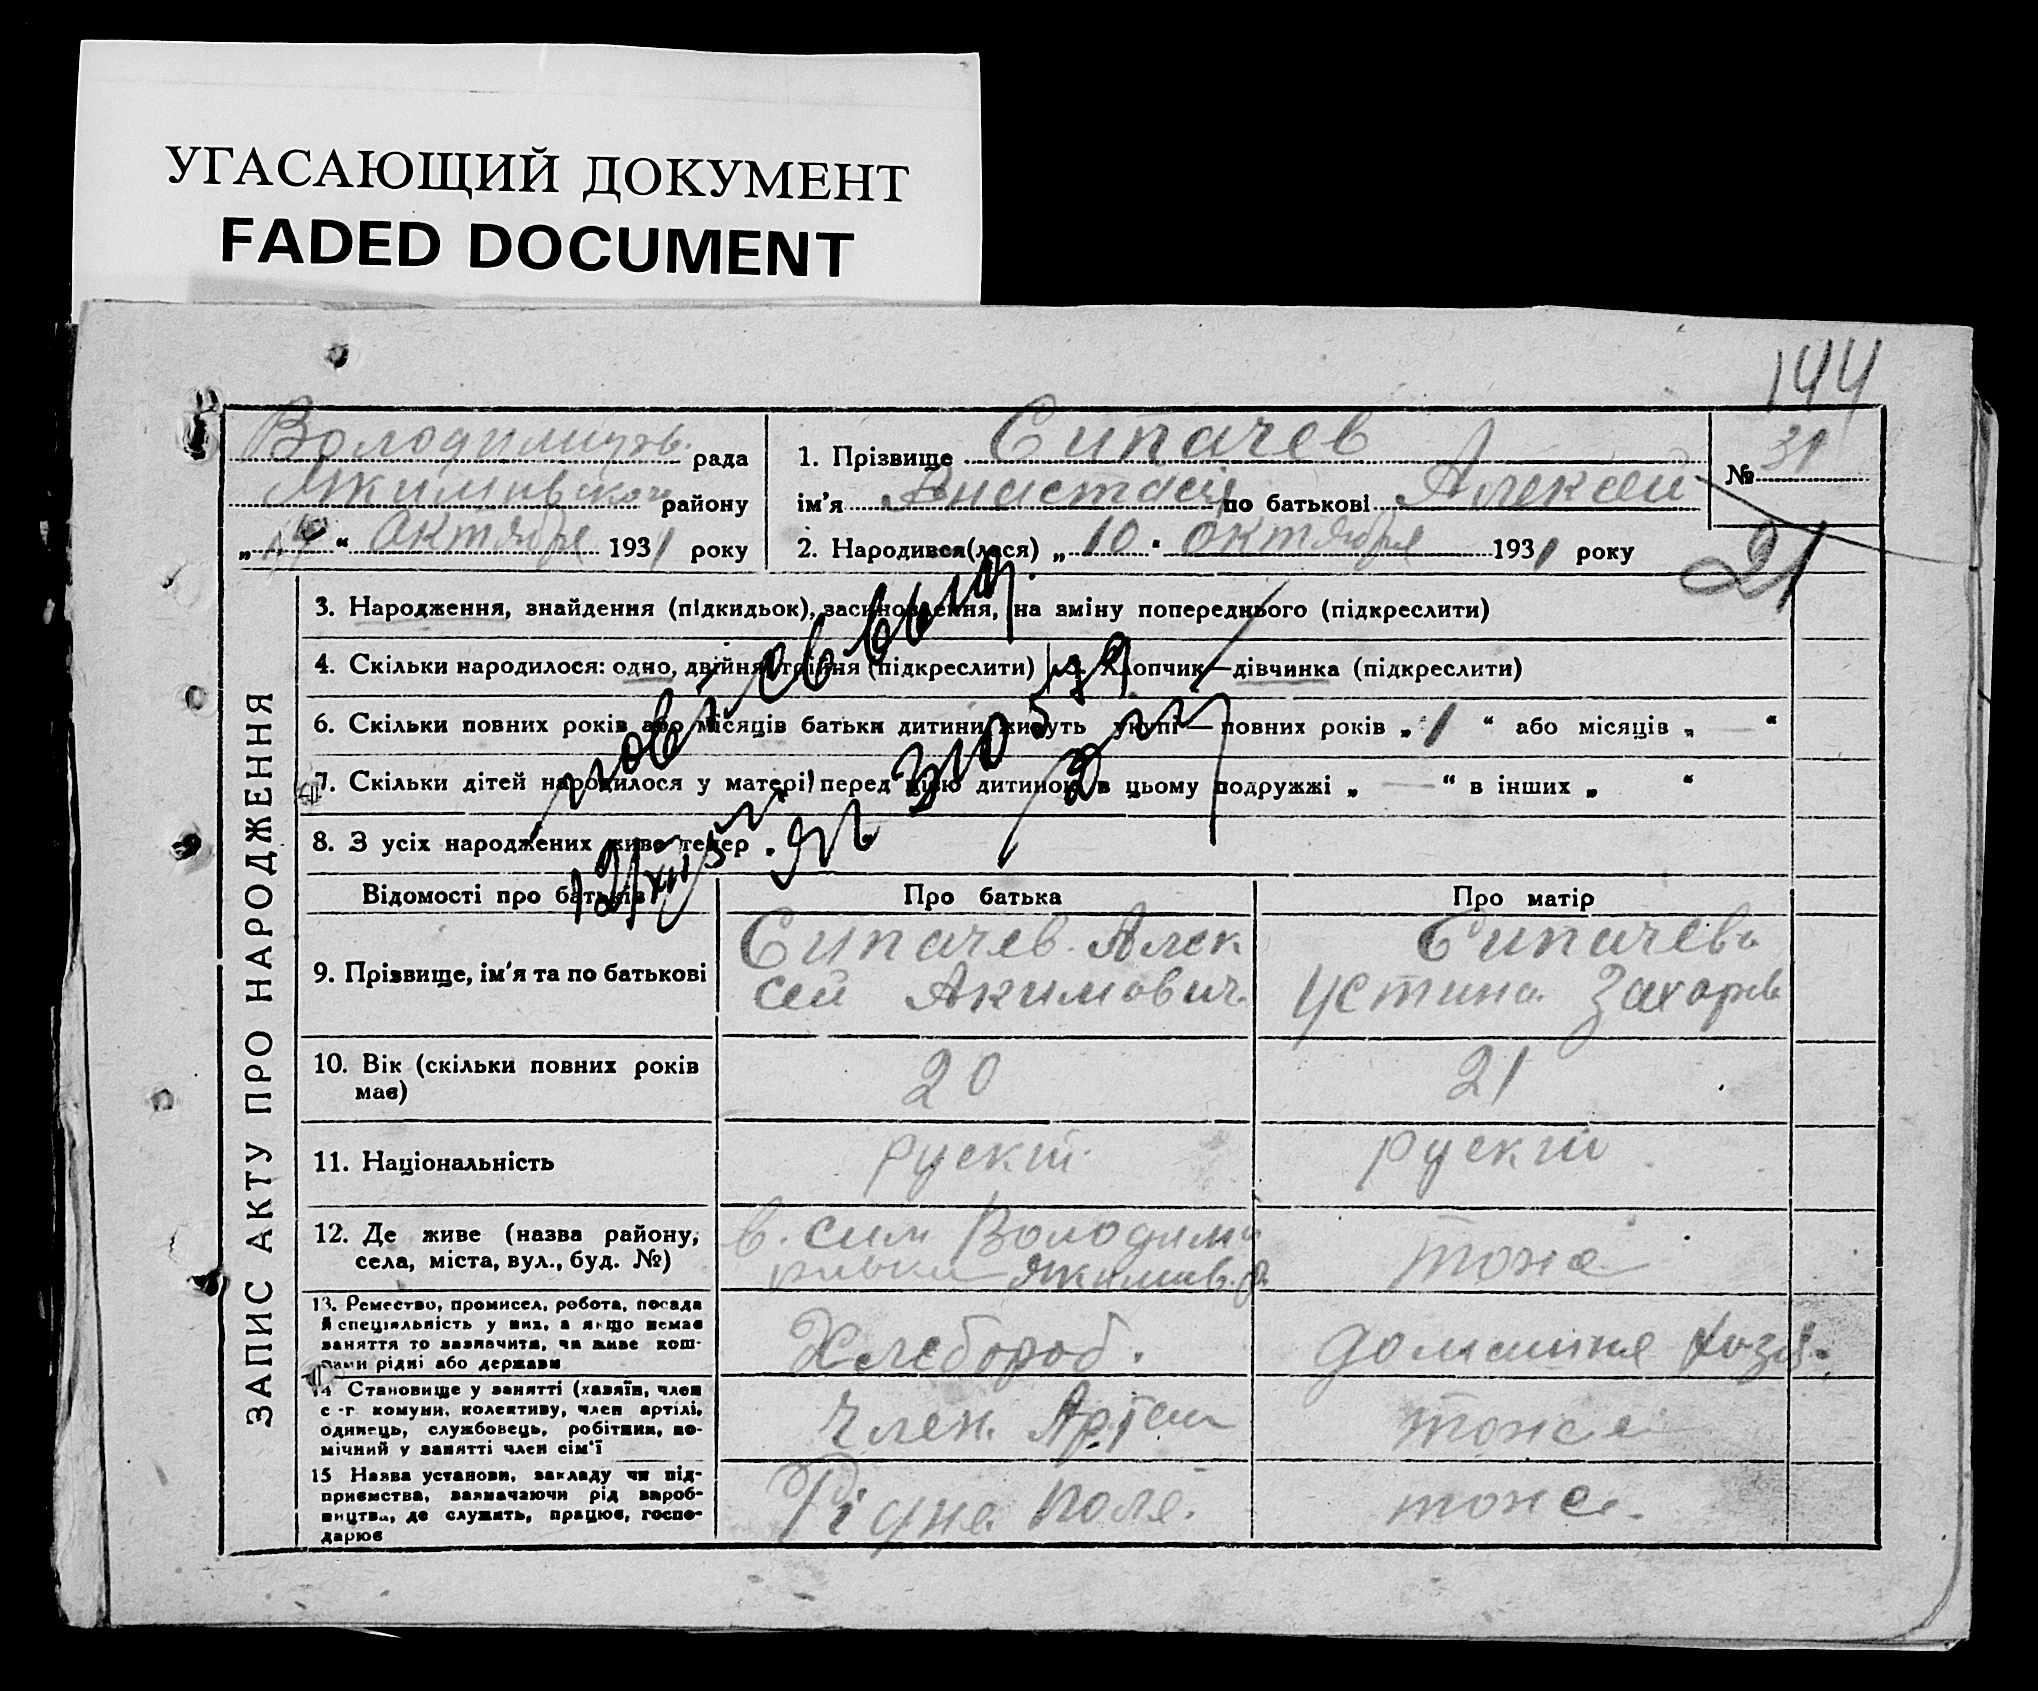 УГАСАЮЩИЙ ДОКУМЕНТ
FADED DOCUMENT
144
рада
району
„ “ октября 1931 року
1. Прізвище Сипачев
ім'я Анастасія по батькові Алексей
2. Народився(лася) „ 10 “ октября 1931 року
№ 31
21
ЗАПИС АКТУ ПРО НАРОДЖЕННЯ
3. Народження, знайдення (підкидьок), засиновлення, на зміну попереднього (підкреслити)
4. Скільки народилося: одно, двійня, трійня (підкреслити)
Хлопчик—дівчинка (підкреслити)
6. Скільки повних років або місяців батьки дитини живуть укупі— повних років „ 1 “ або місяців „ — “
7. Скільки дітей народилося у матері перед цією дитиною в цьому подружжі „ — “ в інших „ “
8. З усіх народжених живе тепер
Відомості про батьків
Про батька
Про матір
9. Прізвище, ім'я та по батькові
Сипачев Алек
сей Акимович
Сипачева
Устина Захаров
10. Вік (скільки повних років
має)
20
21
11. Національність
руский
руский
12. Де живе (назва району,
села, міста, вул., буд. №)
в. Володими
тоже
13. Ремество, промисел, робота, посада
й спеціяльність у них, а якщо немає
заняття то зазначити, чи живе кош-
тами рідні або держави
Хлебороб.
домашня хозя.
14 Становище у занятті (хазяїн, член
с.-г. комуни, колективу, член артілі,
одинець, службовець, робітник, по-
мічний у занятті член сім'ї
Член Артели
тоже
15 Назва установи, закладу чи під-
приємства, зазначаючи рід вироб-
ництва, де служить, працює, госпо-
дарює
Рідне поле.
тоже.